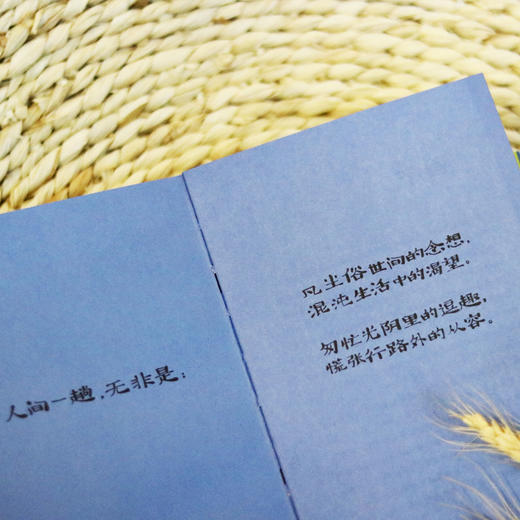 人间一趟，无非是：
凡尘俗世间的念想，
混沌生活中的渴望。
匆忙光阴里的逗趣，
慌张行路外的从容。